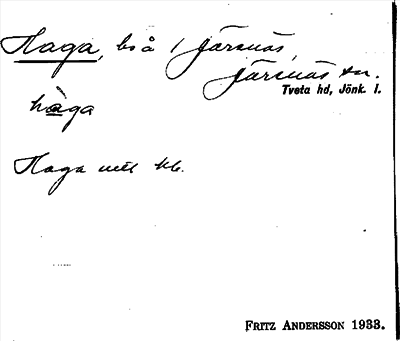 Haga, bs å 1 Järsnäs,
Järsnäs sn.
Tveta hd, Jönk. l.
hàga
Haga mtl kb.
FRITZ ANDERSSON 1933.